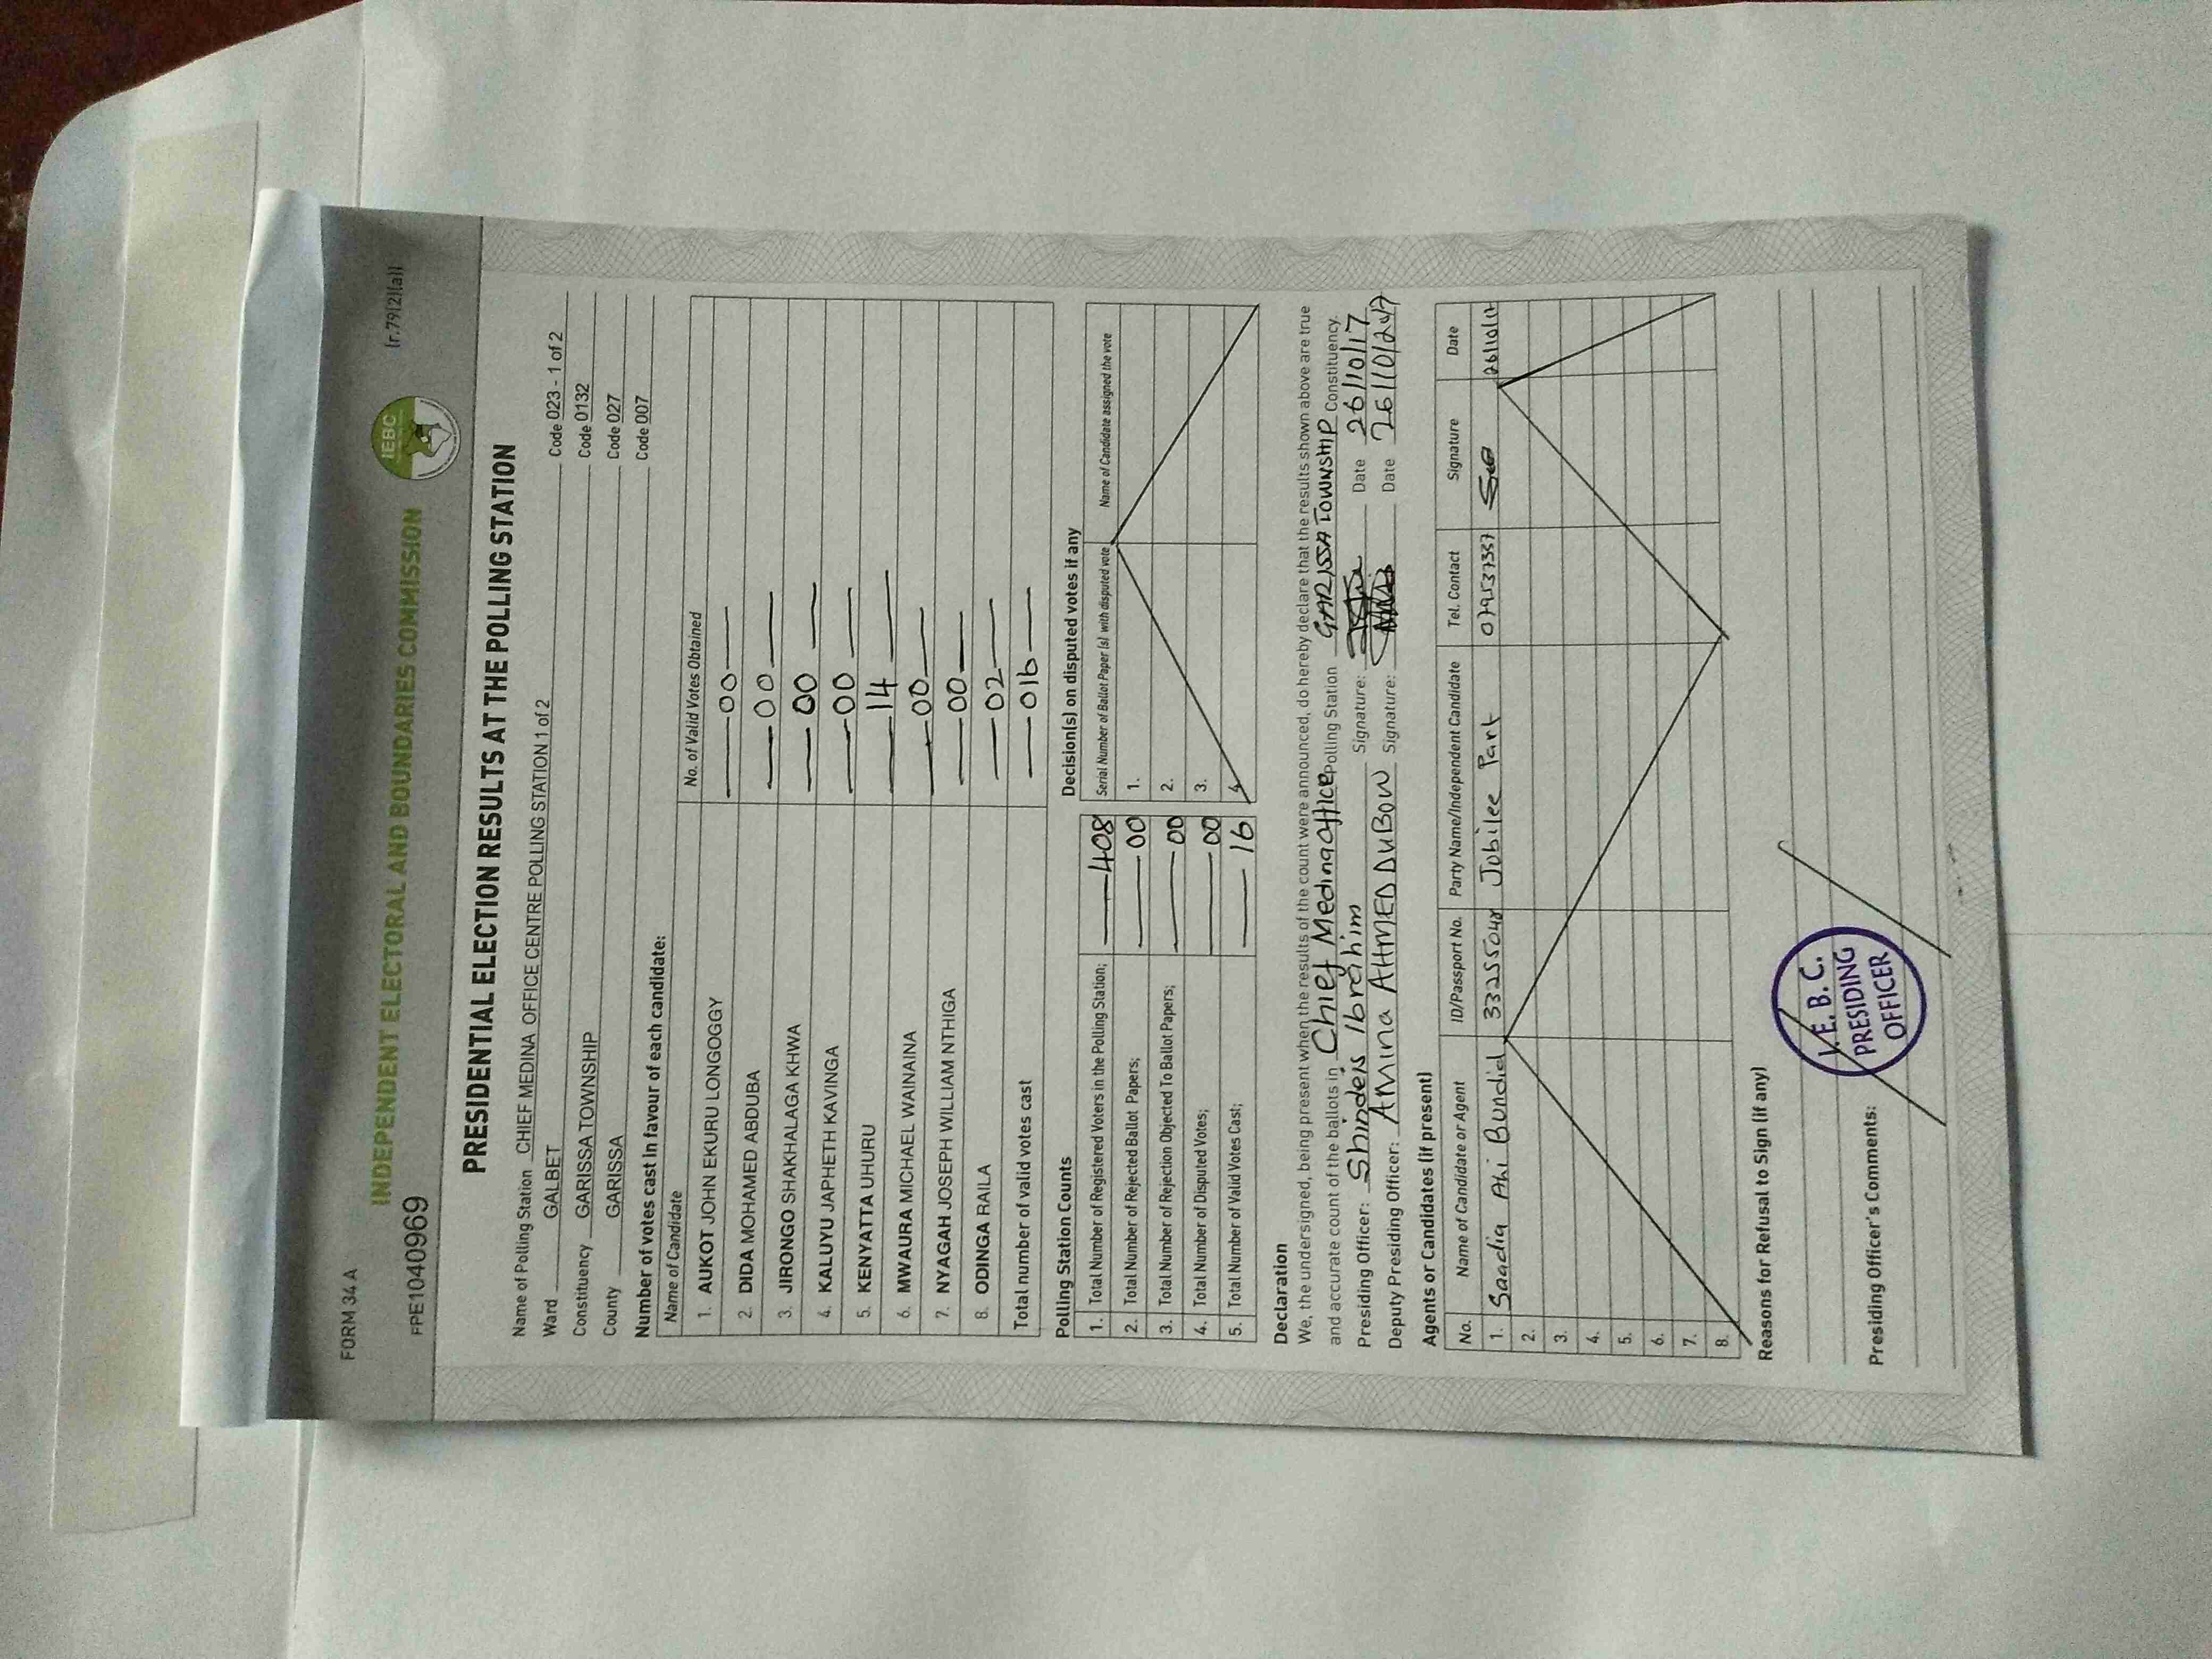 FORM 34 A
INDEPENDENT ELECTORAL AND BOUNDARIES COMMISSION
IEBC
(r.79(2)(a))
FPE1040969
PRESIDENTIAL ELECTION RESULTS AT THE POLLING STATION
Name of Polling Station CHIEF MEDINA OFFICE CENTRE POLLING STATION 1 of 2 Code 023 - 1 of 2
Ward GALBET Code 0132
Constituency GARISSA TOWNSHIP Code 027
County GARISSA Code 007
Number of votes cast in favour of each candidate:
Name of Candidate No. of Valid Votes Obtained
1. AUKOT JOHN EKURU LONGOGGY 00
2. DIDA MOHAMED ABDUBA 00
3. JIRONGO SHAKHALAGA KHWA 00
4. KALUYU JAPHETH KAVINGA 00
5. KENYATTA UHURU 14
6. MWAURA MICHAEL WAINAINA 00
7. NYAGAH JOSEPH WILLIAM NTHIGA 00
8. ODINGA RAILA 02
Total number of valid votes cast 016
Polling Station Counts
1. Total Number of Registered Voters in the Polling Station; 408
2. Total Number of Rejected Ballot Papers; 00
3. Total Number of Rejection Objected To Ballot Papers; 00
4. Total Number of Disputed Votes; 00
5. Total Number of Valid Votes Cast; 16
Decision(s) on disputed votes if any
Serial Number of Ballot Paper (s) with disputed vote Name of Candidate assigned the vote
1.
2.
3.
4.
Declaration
We, the undersigned, being present when the results of the count were announced, do hereby declare that the results shown above are true
and accurate count of the ballots in Chief Medina office Polling Station GARISSA TOWNSHIP Constituency.
Presiding Officer: Shindeis Ibrahim Signature: Date 26/10/17
Deputy Presiding Officer: Amina AHMED DUBOW Signature: Date 26/10/2017
Agents or Candidates (if present)
No. Name of Candidate or Agent ID/Passport No. Party Name/Independent Candidate Tel. Contact Signature Date
1. Saadia Bundid Jobilee Part 26/10/17
2.
3.
4.
5.
6.
7.
8.
Reasons for Refusal to Sign (if any)
Presiding Officer's Comments:
I.E.B.C.
PRESIDING
OFFICER